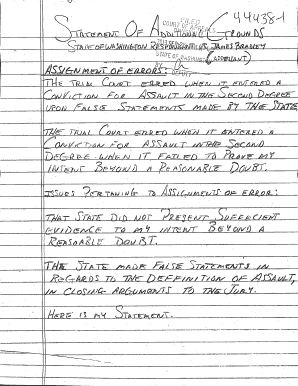 44438-1
STATEMENT OF ADDITIONAL GROUNDS
STATE OF WASHINGTON RESPONDENT V. JAMES BRADLEY
(APPELLANT)
STATE OF WASHINGTON
BY
DEPUTY
ASSIGNMENT OF ERRORS:
THE TRIAL COURT ERRED WHEN IT ENTERED A
CONVICTION FOR ASSAULT IN THE SECOND DEGREE
UPON FALSE STATEMENTS MADE BY THE STATE
THE TRIAL COURT ERRED WHEN IT ENTERED A
CONVICTION FOR ASSAULT IN THE SECOND
DEGREE WHEN IT FAILED TO PROVE MY
INTENT BEYOND A REASONABLE DOUBT.
ISSUES PERTAINING TO ASSIGNMENTS OF ERROR:
THAT STATE DID NOT PRESENT SUFFECIENT
EVIDENCE TO MY INTENT BEYOND A
REASONABLE DOUBT.
THE STATE MADE FALSE STATEMENTS IN
REGARDS TO THE DEFFINITION OF ASSAULT,
IN CLOSING ARGUMENTS TO THE JURY.
HERE IS MY STATEMENT.